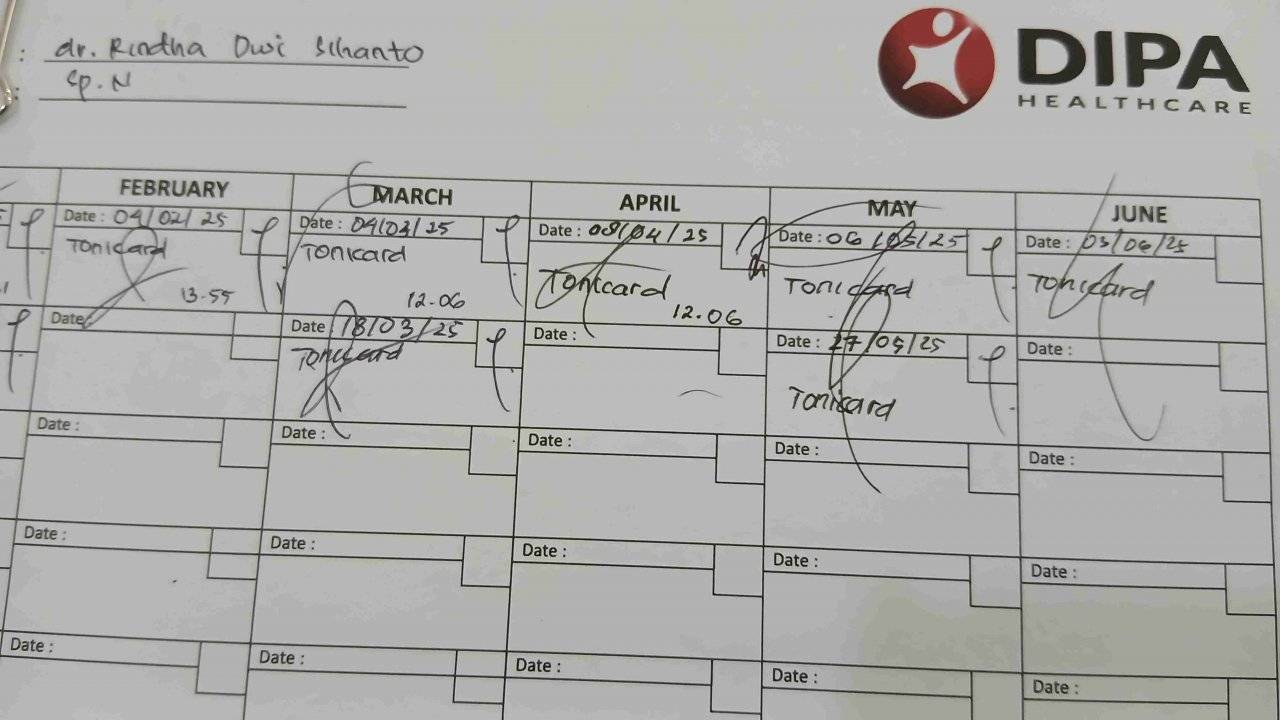 : dr. Rindha Dwi Sihanto
: Sp. N
DIPA
HEALTHCARE
FEBRUARY MARCH APRIL MAY JUNE
Date : 04/02/25 Date : 04/03/25 Date : 08/04/25 Date : 06/05/25 Date : 03/06/25
Tonicard Tonicard Tonicard Tonicard Tonicard
13.55 12.06 12.06
Date Date 18/03/25 Date : Date : 27/05/25 Date :
Tonicard Tonicard
Date : Date : Date : Date : Date :
Date : Date : Date : Date : Date :
Date : Date : Date : Date : Date :